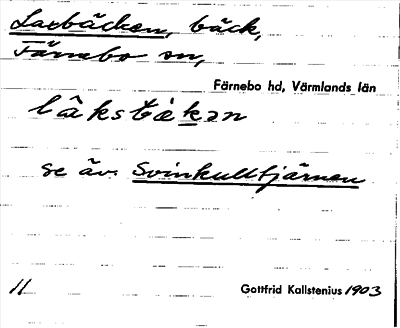 Laxbäcken, bäck,
Färnebo sn,
Färnebo hd, Värmlands län
lâksbäkən
se äv. Svinkulltjärnen
11 Gottfrid Kallstenius 1903